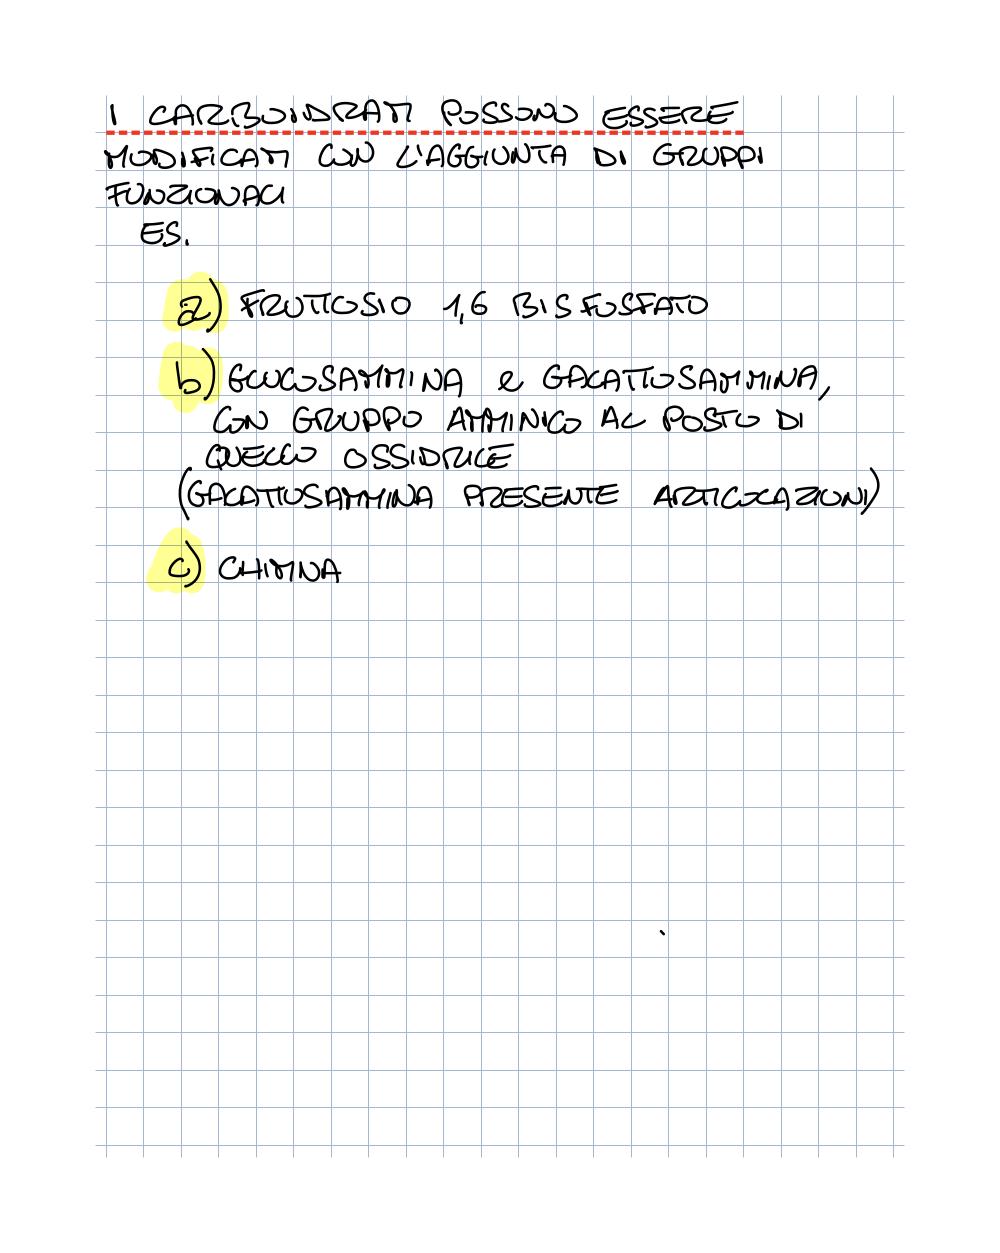 I CARBOIDRATI POSSONO ESSERE
MODIFICATI CON L'AGGIUNTA DI GRUPPI
FUNZIONALI
ES.
a) FRUTTOSIO 1,6 BISFOSFATO
b) GLUCOSAMMINA e GALATTOSAMMINA,
CON GRUPPO AMMINICO AL POSTO DI
QUELLO OSSIDRILE
(GALATTOSAMMINA PRESENTE ARTICOLAZIONI)
c) CHITINA